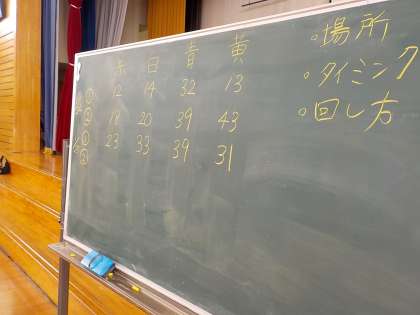 赤 白 青 黄
① 12 14 32 13
② 18 20 39 43
① 23 33 39 31
②
。場所
。タイミング
。回し方